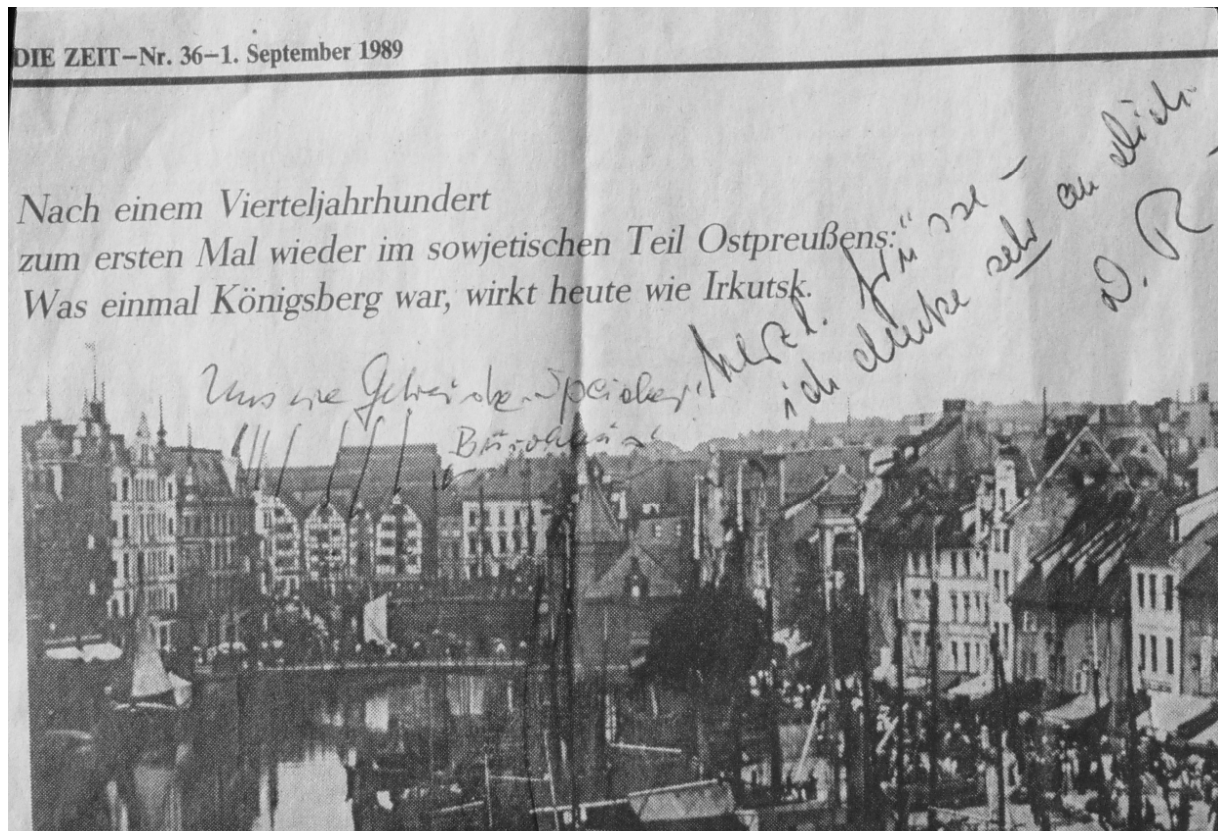 DIE ZEIT–Nr. 36–1. September 1989
Nach einem Vierteljahrhundert
zum ersten Mal wieder im sowjetischen Teil Ostpreußens:
Was einmal Königsberg war, wirkt heute wie Irkutsk.
Unsere Getreide-Speicher,
Bürohaus
herzl. Grüsse –
ich denke sehr an Dich –
D. R